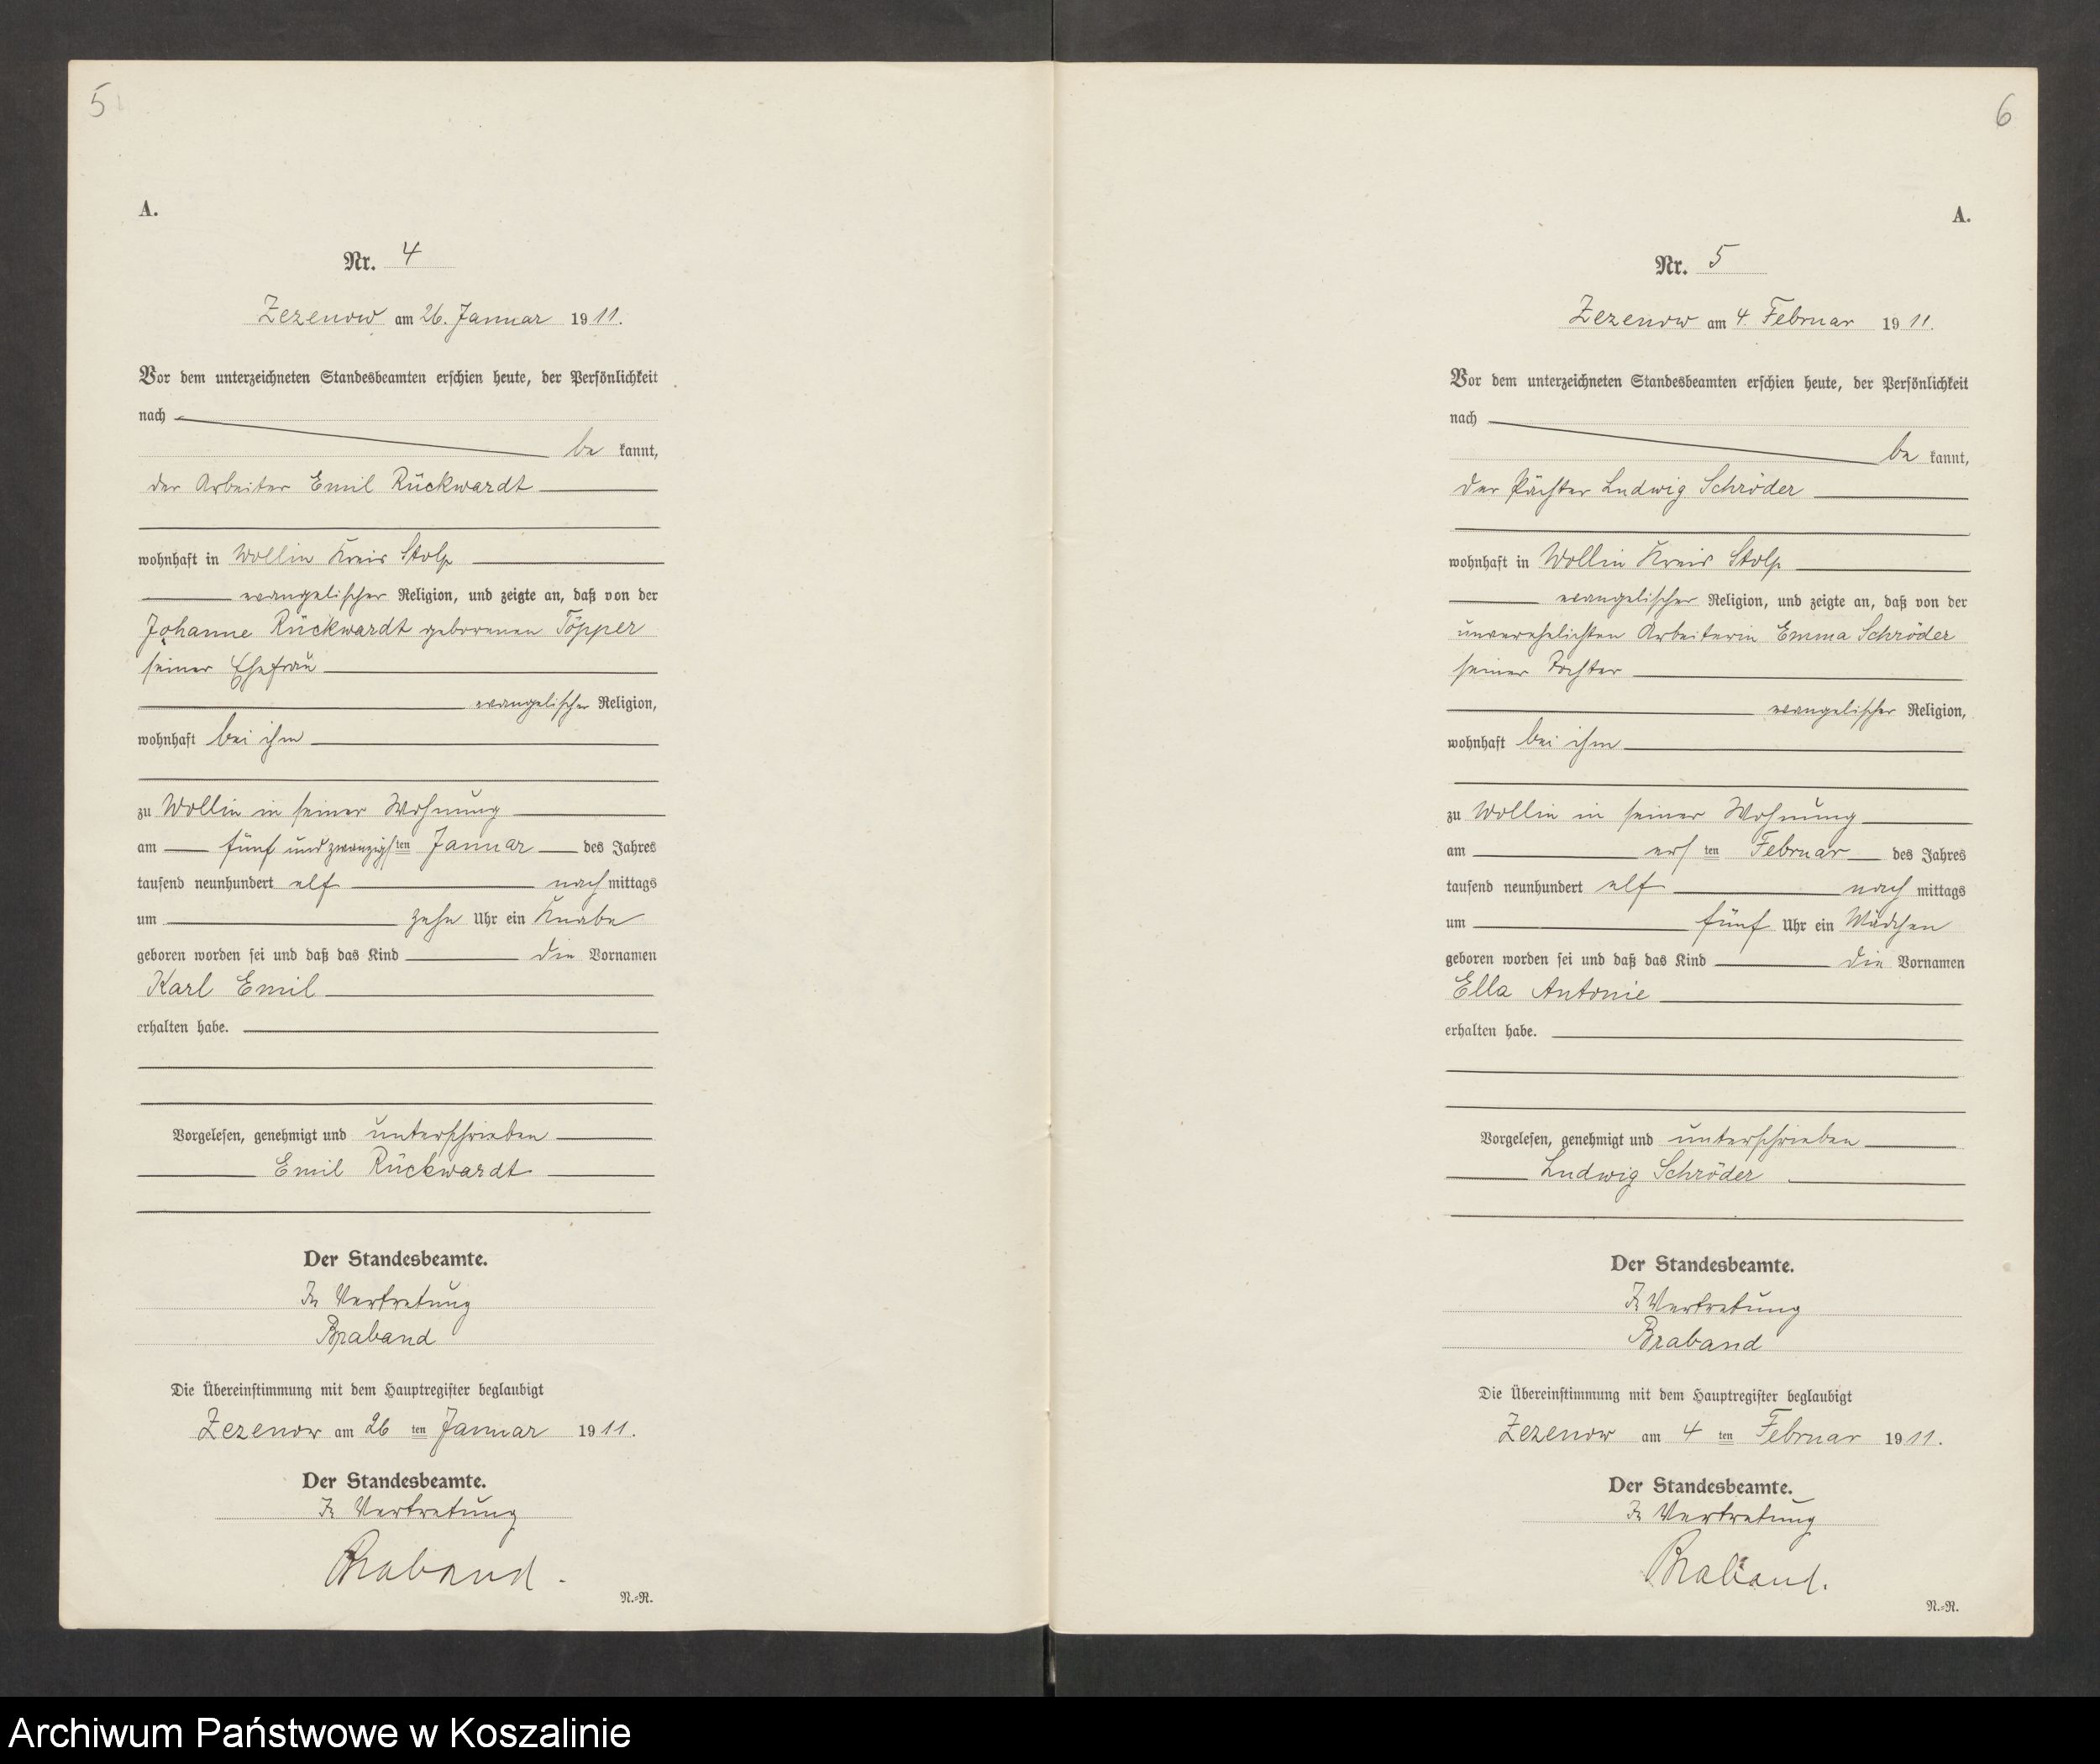 5
A.
Nr. 4
Zezenow am 26. Januar 1911.
Vor dem unterzeichneten Standesbeamten erschien heute, der Persönlichkeit
nach
be kannt,
der Arbeiter Emil Rückwardt
wohnhaft in Wollin Kreis Stolp
evangelischer Religion, und zeigte an, daß von der
Johanne Rückwardt geborenen Töpper
seiner Ehefrau
evangelischer Religion,
wohnhaft bei ihm
zu Wollin in seiner Wohnung
am fünf und zwanzigsten Januar des Jahres
tausend neunhundert elf nach mittags
um zehn Uhr ein Knabe
geboren worden sei und daß das Kind die Vornamen
Karl Emil
erhalten habe.
Vorgelesen, genehmigt und unterschrieben
Emil Rückwardt
Der Standesbeamte.
In Vertretung
Braband
Die Übereinstimmung mit dem Hauptregister beglaubigt
Zezenow am 26 ten Januar 1911.
Der Standesbeamte.
In Vertretung
Braband.
N.=R.
6
A.
Nr. 5
Zezenow am 4. Februar 1911.
Vor dem unterzeichneten Standesbeamten erschien heute, der Persönlichkeit
nach
be kannt,
der Pächter Ludwig Schröder
wohnhaft in Wollin Kreis Stolp
evangelischer Religion, und zeigte an, daß von der
unverehelichten Arbeiterin Emma Schröder
seiner Tochter
evangelischer Religion,
wohnhaft bei ihm
zu Wollin in seiner Wohnung
am ersten Februar des Jahres
tausend neunhundert elf nach mittags
um fünf Uhr ein Mädchen
geboren worden sei und daß das Kind die Vornamen
Ella Antonie
erhalten habe.
Vorgelesen, genehmigt und unterschrieben
Ludwig Schröder
Der Standesbeamte.
In Vertretung
Braband
Die Übereinstimmung mit dem Hauptregister beglaubigt
Zezenow am 4 ten Februar 1911.
Der Standesbeamte.
In Vertretung
Braband.
N.=R.
Archiwum Państwowe w Koszalinie